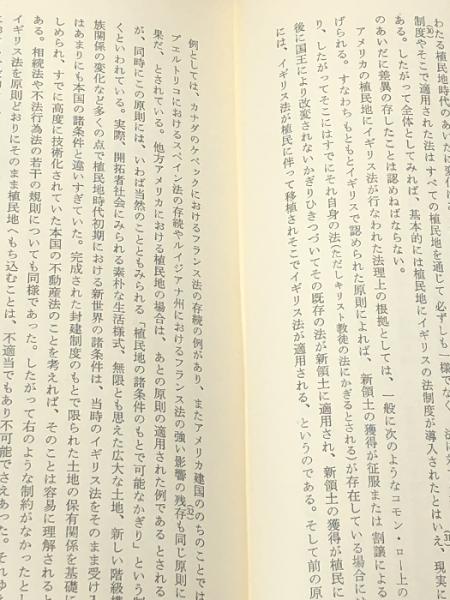 わたる植民地時代のあいだに変化
制度やそこで適用された法は すべての植民地を通じて 必ずしも一様でなく
ある。したがって全体としてみれば、基本的には植民地にイギリスの法制度が導入されたとはいえ、現実に
のあいだに差異の存したことは認めねばならない。
アメリカの植民地にイギリス法が行なわれた法理上の根拠としては、一般に次のようなコモン・ロー上の
げられる。すなわち もともとイギリスで認められた原則によれば、新領土の獲得が征服または割譲による
り、したがってそこにはすでにそれ自身の法(ただしキリスト教徒の法にかぎるとされる)が存在している場合には
後に国王により改変されないかぎりひきつづいてその既存の法が新領土に適用され、新領土の獲得が植民に
には、イギリス法が植民に伴って移植されそこでイギリス法が適用される、というのである。そして前の原
例としては、カナダのケベックにおけるフランス法の存続の例があり、またアメリカ建国ののちのことでは
プエルトリコにおけるスペイン法の存続やルイジアナ州におけるフランス法の強い影響の残存(32)も同じ原則に
果だ、とされている。他方アメリカにおける植民地の場合は、あとの原則の適用された例である とされる
が、同時にこの原則には、いわば当然のことともみられる「植民地の諸条件のもとで可能なかぎり」という
くといわれている。実際、開拓者社会にみられる素朴な生活様式、無限とも思えた広大な土地、新しい階級構
族関係の変化など多くの点で植民地時代初期における新世界の諸条件は、当時のイギリス法をそのまま受け入
はあまりにも本国の諸条件と違いすぎていた。完成された封建制度のもとで限られた土地の保有関係を基礎に
しめられ、すでに高度に技術化されていた本国の不動産法のことを考えれば、そのことは容易に理解されると
ある。相続法や不法行為法の若干の規則についても同様であった。したがって右のような制約がなかったとし
イギリス法を原則どおりにそのまま植民地へもち込むことは、不適当でもあり不可能でさえあった。それゆ